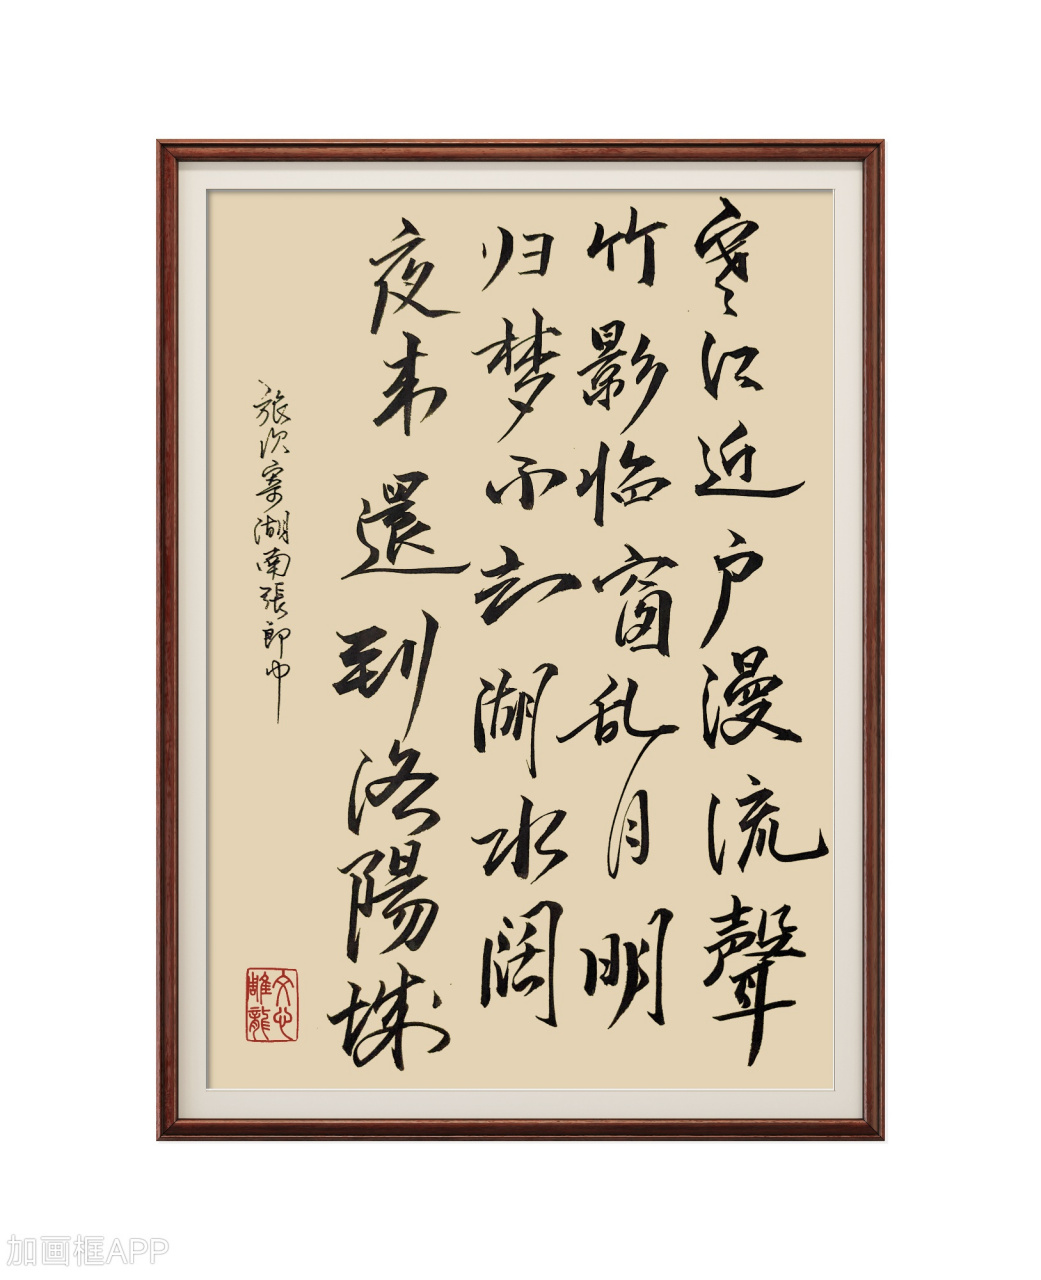 寒江近户漫流聲
竹影临窗乱月明
归梦不去湖水阔
夜来還到洛陽城
旅次寄湖南張郎中
文心
雕龍
加画框APP